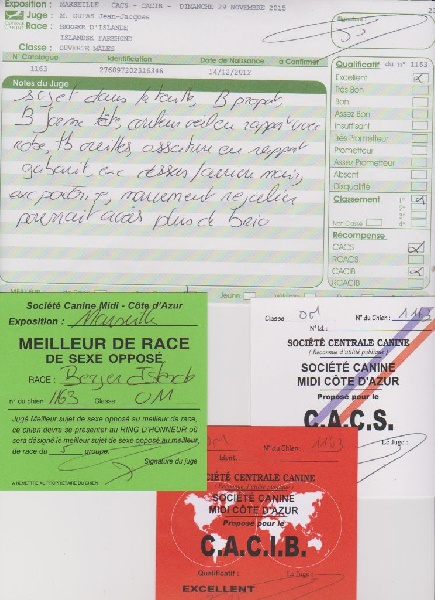 Exposition : MARSEILLE CACS - CACIB - DIMANCHE 29 NOVEMBRE 2015
Juge : M. Jean-Jacques
Race : BERGER D'ISLANDE
ISLANSK FAREHOND
Classe : OUVERTE MALES
Signature
N° Catalogue Identification Date de Naissance à Confirmer
1163 276097202316346 14/12/2012
Notes du Juge
Sujet dans le taille, B proport,
B forme tête, couleur oeil en rapport avec
robe, TB oreilles, ossature en rapport
gabarit, en dessus ferme mais,
mouvement régulier
pourrait avoir plus de brio
Qualificatif du n° 1163
Excellent
Très Bon
Bon
Assez Bon
Insuffisant
Très Prometteur
Prometteur
Assez Prometteur
Absent
Disqualifié
Classement 1°
2°
3°
4°
Non Classé
Récompense
CACS
RCACS
CACIB
RCACIB
Jeune
Société Canine Midi - Côte d'Azur
Exposition : Marseille
MEILLEUR DE RACE
DE SEXE OPPOSÉ
RACE : Berger Islande
n° du chien 1163 Classe OM
Jugé Meilleur sujet de sexe opposé au meilleur de race,
ce chien devra se présenter au RING D'HONNEUR où
sera désigné le meilleur sujet de sexe opposé au meilleur
de race du 5 groupe.
Signature du juge
A REMETTRE AU PROPRIETAIRE DU CHIEN
Classe OM N° du Chien : 1163
N° Id. :
SOCIÉTÉ CENTRALE CANINE
(Reconnue d'utilité publique)
SOCIÉTÉ CANINE
MIDI CÔTE D'AZUR
Proposé pour le
C.A.C.S.
Le Juge :
N° du Chien : 1163
Ident.
SOCIÉTÉ CENTRALE CANINE
(Reconnue d'utilité publique)
SOCIÉTÉ CANINE
MIDI CÔTE D'AZUR
Proposé pour le
C.A.C.I.B.
Qualificatif : Le Juge
EXCELLENT